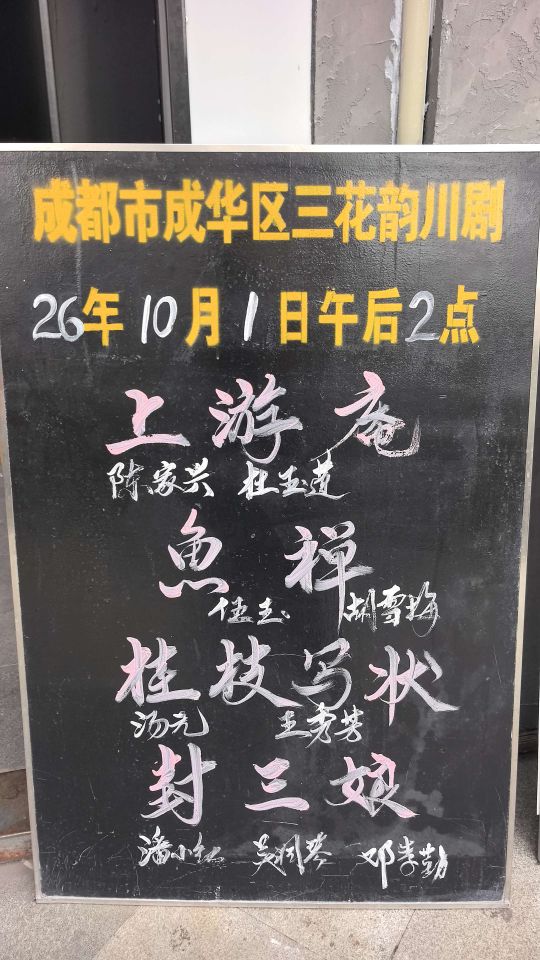 成都市成华区三花韵川剧
26年10月1日午后2点
上游庵
陈家兴 杜玉莲
魚禅
伍玉 胡雪梅
桂枝写状
汤元 王秀芳
封三娘
潘小红 吴桐琴 邓孝勤